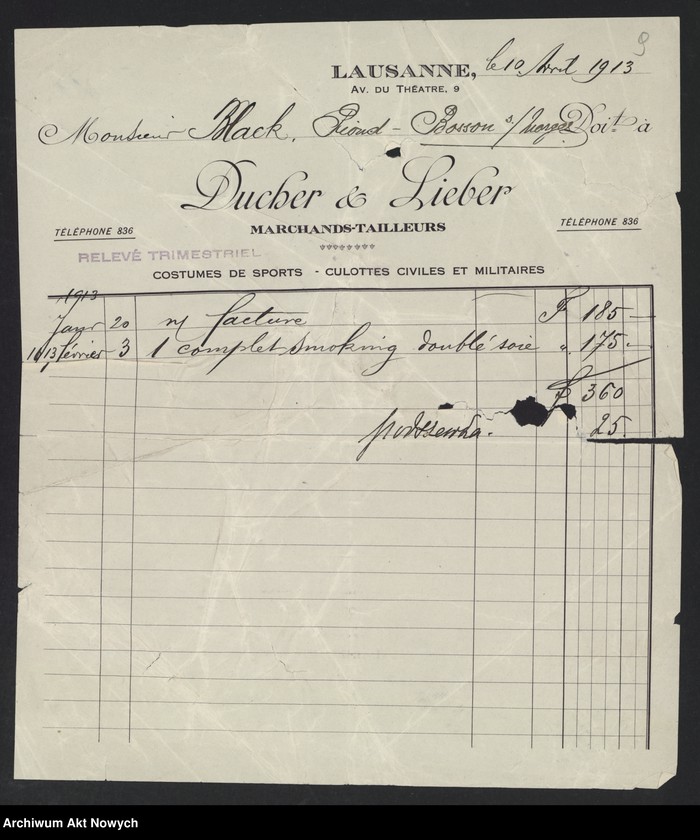 9
LAUSANNE, le 10 Avril 1913
AV. DU THÉATRE, 9
Monsieur Black, Riond-Bosson s/Morges Doit à
Ducher & Lieber
TÉLÉPHONE 836
MARCHANDS-TAILLEURS
TÉLÉPHONE 836
RELEVÉ TRIMESTRIEL
COSTUMES DE SPORTS - CULOTTES CIVILES ET MILITAIRES
1913
Janr 20 n/ facture F 185 -
février 3 1 complet smoking doublé soie " 175 -
F 360
25
Archiwum Akt Nowych